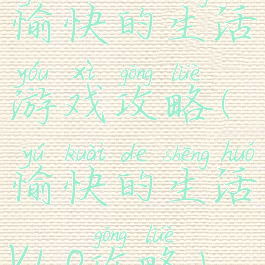 愉快的生活
yóu xì gōng lüè
游戏攻略(
yú kuài de shēng huó
愉快的生活
gōng lüè
攻略)